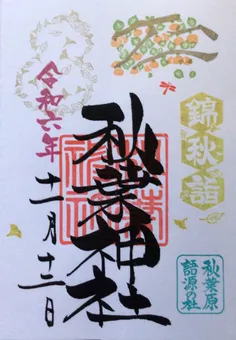 錦秋詣
令和六年
十一月十三日
秋葉神社
秋葉原
語源の社